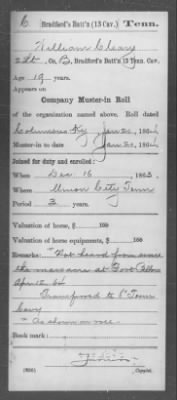 C | Bradford's Batt'n (13 Cav.) | Tenn.
William Cleary
2 Lt., Co. B, Bradford's Batt'n 13 Tenn. Cav.
Age 19 years.
Appears on
Company Muster-in Roll
of the organization named above. Roll dated
Columbus Ky Jan 20, 1864
Muster-in to date Jan 20, 1864
Joined for duty and enrolled:
When Dec 16, 1863.
Where Union City Tenn
Period 3 years.
Valuation of horse, $ 100
Valuation of horse equipments, $ 100
Remarks: Not heard from since
the massacre at Fort Pillow
Apr 12 64
Transferred to 6" Tenn
Cavy
- As shown on roll -
Book mark:
(356) Copyist.